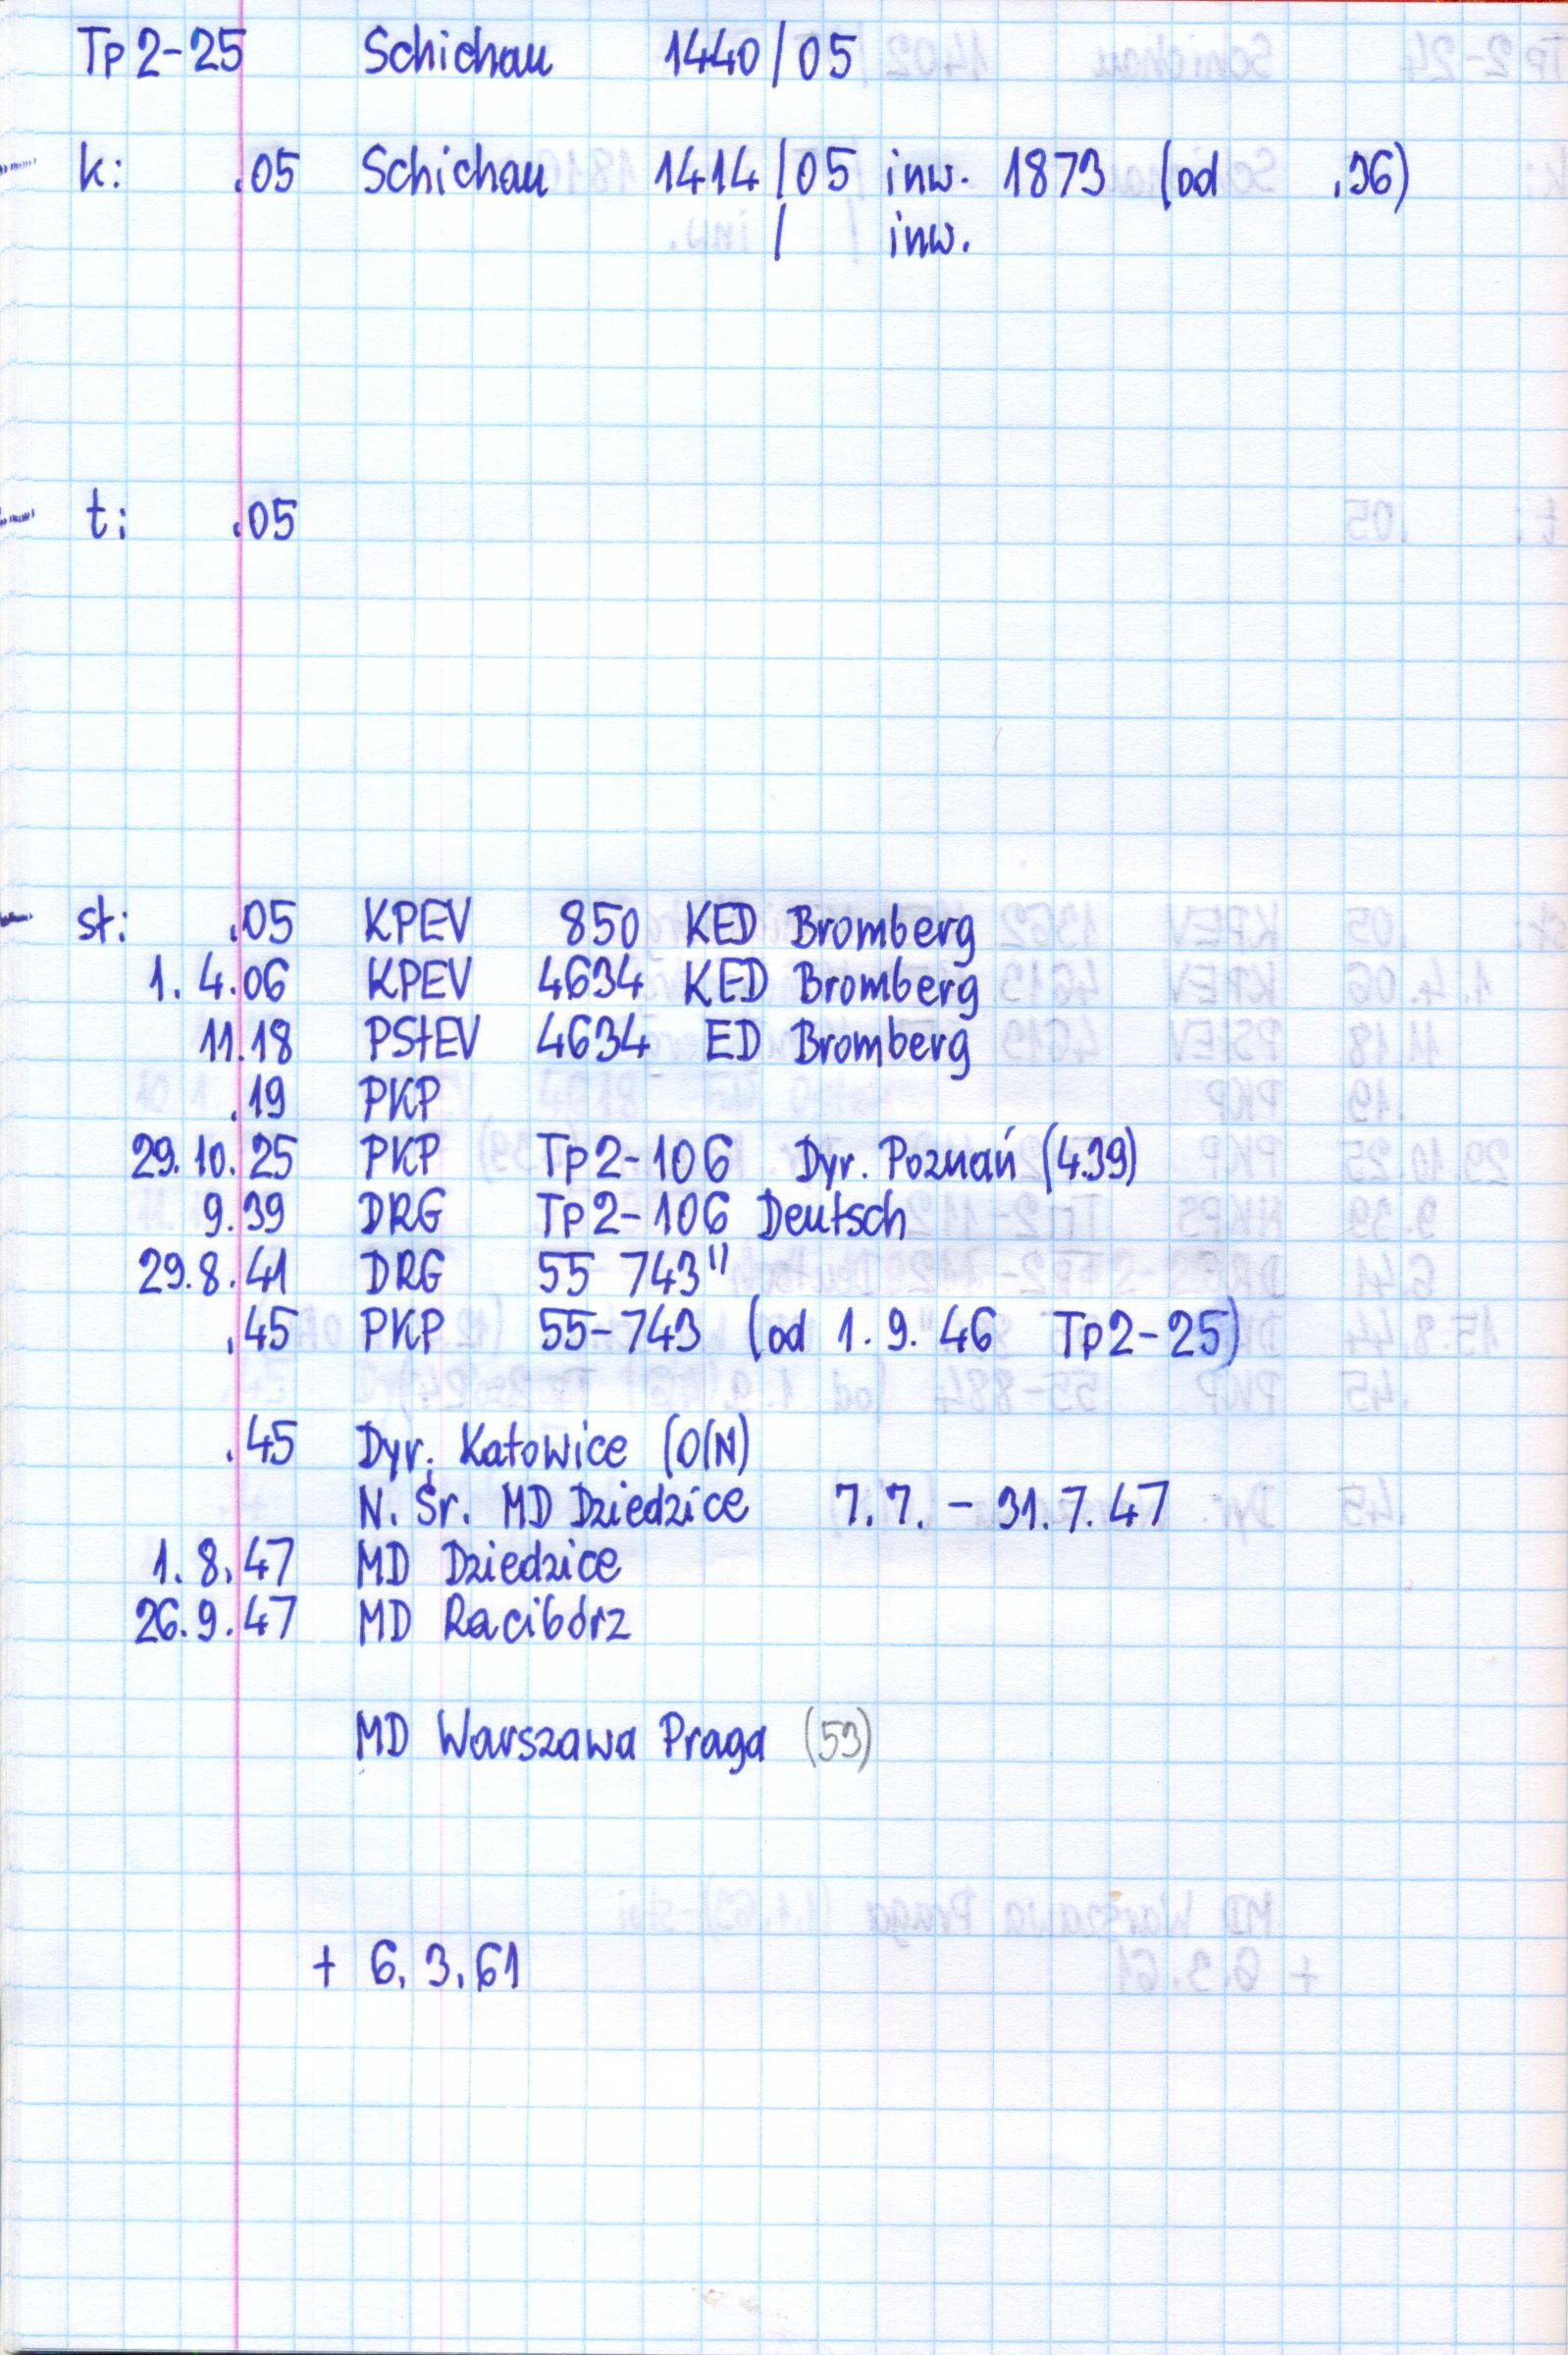 Tp2-25 Schichau 1440/05
k: .05 Schichau 1414/05 inw. 1873 (od .36)
/ inw.
t: .05
st: .05 KPEV 850 KED Bromberg
1.4.06 KPEV 4634 KED Bromberg
11.18 PStEV 4634 ED Bromberg
.19 PKP
29.10.25 PKP Tp2-106 Dyr. Poznań (4.39)
9.39 DRG Tp2-106 Deutsch
29.8.41 DRG 55 743"
.45 PKP 55-743 (od 1.9.46 Tp2-25)
.45 Dyr. Katowice (O(N)
N. Śr. MD Dziedzice 7.7. - 31.7.47
1.8.47 MD Dziedzice
26.9.47 MD Racibórz
MD Warszawa Praga (53)
+ 6.3.61